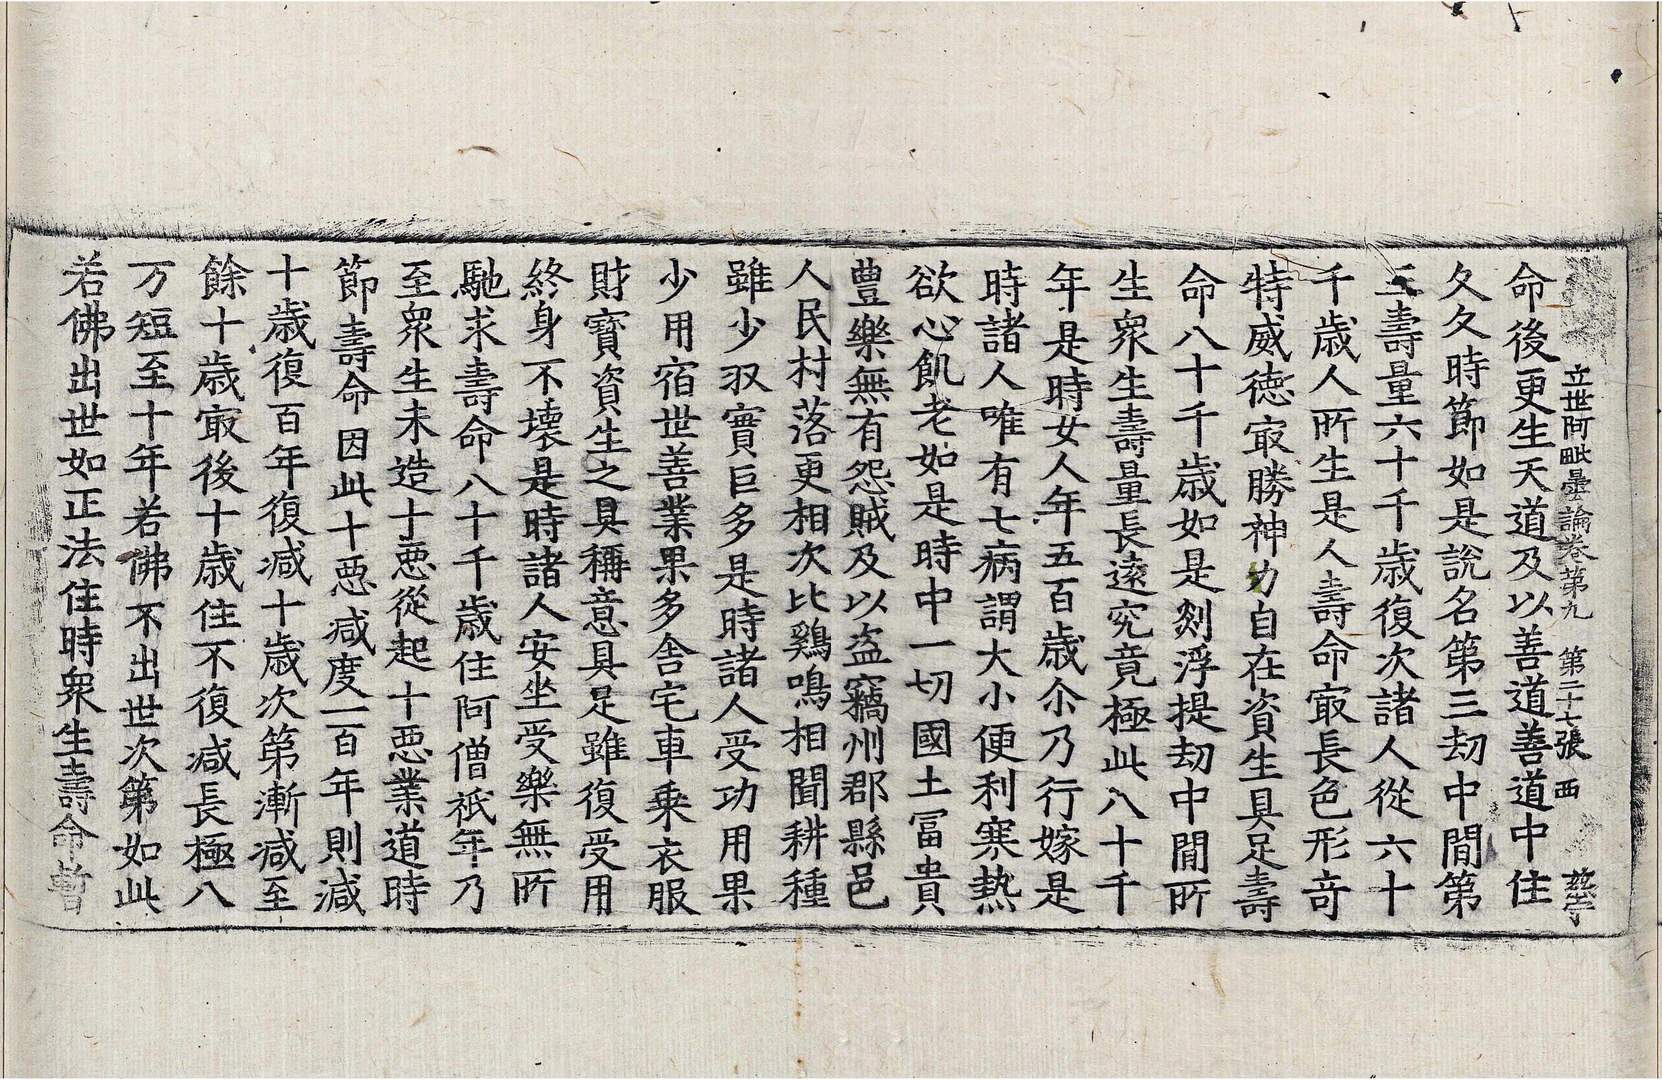 立世阿毗曇論卷第九 第二十七張 西
命後更生天道及以善道善道中住
久久時節如是說名第三劫中間第
三壽量六十千歲復次諸人從六十
千歲人所生是人壽命㝡長色形奇
特威德㝡勝神力自在資生具足壽
命八十千歲如是剡浮提劫中間所
生衆生壽量長遠究竟極此八十千
年是時女人年五百歲尒乃行嫁是
時諸人唯有七病謂大小便利寒熱
欲心飢老如是時中一切國土冨貴
豊樂無有怨賊及以盗竊州郡縣邑
人民村落更相次比鷄鳴相聞耕種
雖少収實巨多是時諸人受功用果
少用宿世善業果多舍宅車乗衣服
財寳資生之具稱意具足雖復受用
終身不壞是時諸人安坐受樂無所
馳求壽命八十千歲住阿僧祇年乃
至衆生未造十惡從起十惡業道時
節壽命因此十惡减度一百年則減
十歲復百年復减十歲次第漸減至
餘十歲㝡後十歲住不復减長極八
万短至十年若佛不出世次第如此
若佛出世如正法住時衆生壽命暫